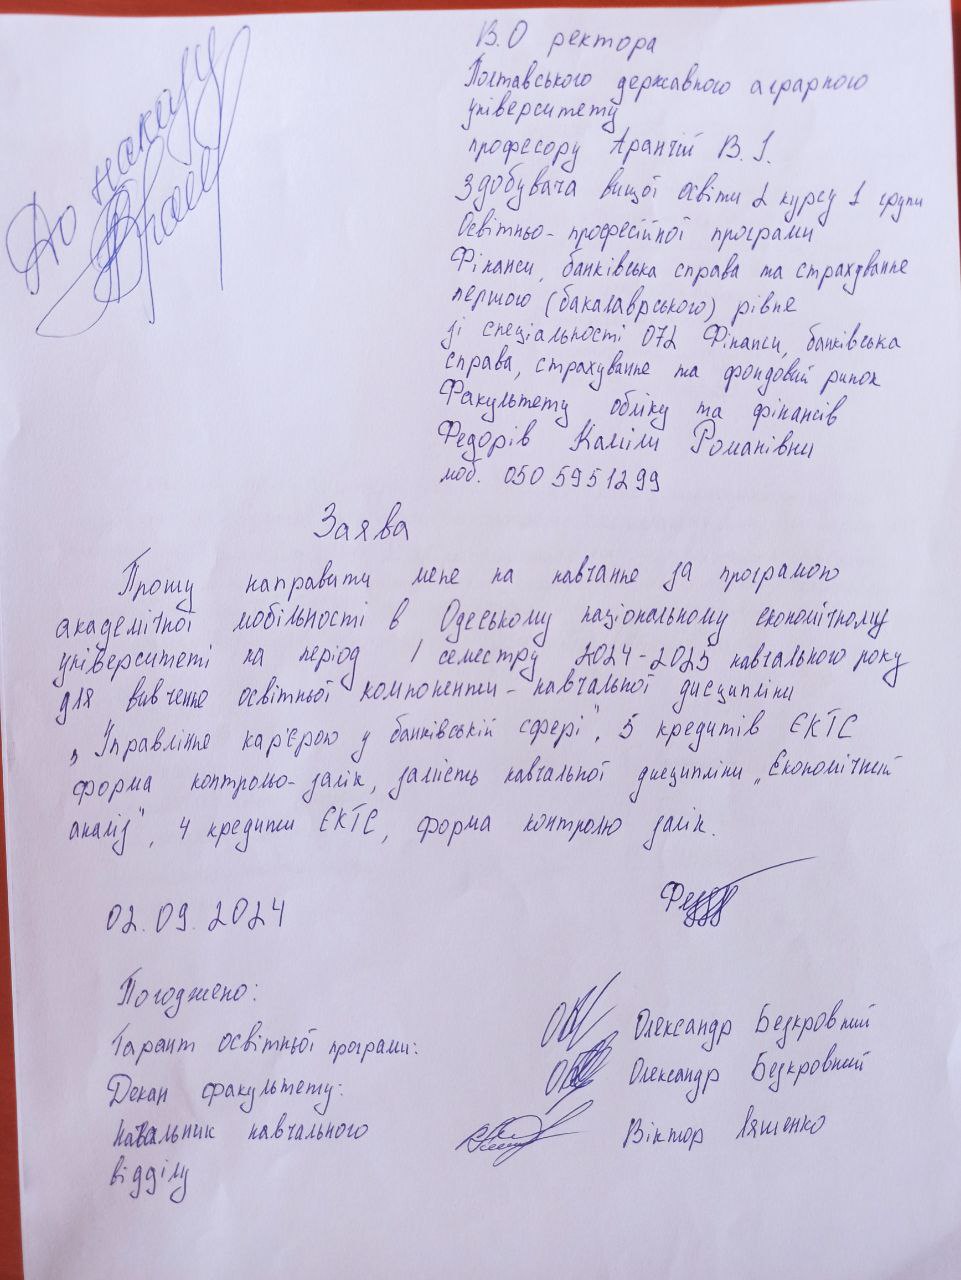 До наказу
В.О ректора
Полтавського державного аграрного
університету
професору Аранчій В.І.
здобувача вищої освіти 2 курсу 1 групи
Освітньо-професійної програми
Фінанси, банківська справа та страхування
першого (бакалаврського) рівня
зі спеціальності 072 Фінанси, банківська
справа, страхування та фондовий ринок
Факультету обліку та фінансів
Федорів Каміли Романівни
моб. 050 5951299
Заява
Прошу направити мене на навчання за програмою
академічної мобільності в Одеському національному економічному
університеті на період I семестру 2024-2025 навчального року
для вивчення освітньої компоненти - навчальної дисципліни
„Управління кар'єрою у банківській сфері", 5 кредитів ЄКТС
форма контролю-залік, замість навчальної дисципліни „Економічний
аналіз", 4 кредити ЄКТС, форма контролю залік.
02.09.2024
Погоджено:
Гарант освітньої програми: Олександр Безкровний
Декан факультету: Олександр Безкровний
Начальник навчального Віктор Ляшенко
відділу